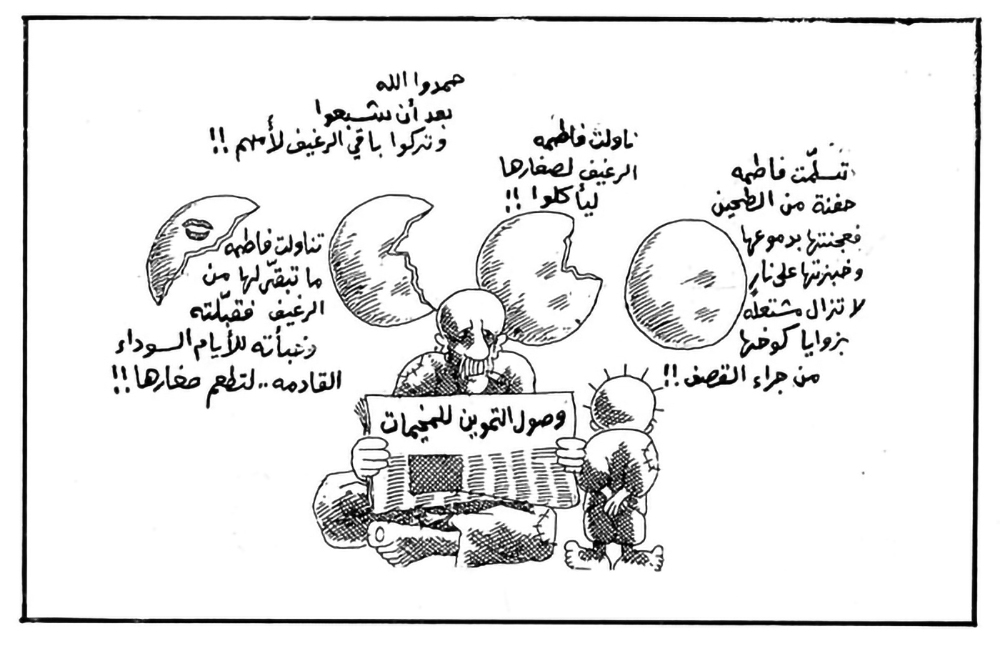 تسلّمت فاطمه
حفنة من الطحين
فعجنتها بدموعها
وخبزتها على نارٍ
لا تزال مشتعله
بزوايا كوخها
من جراء القصف !!
ناولت فاطمه
الرغيف لصغارها
ليأكلوا !!
حمدوا الله
بعد أن شبعوا
وتركوا باقي الرغيف لأمهم !!
تناولت فاطمه
ما تبقّى لها من
الرغيف فقبّلته
وخبأته للأيام السوداء
القادمه .. لتطعم صغارها !!
وصول التموين للمخيمات